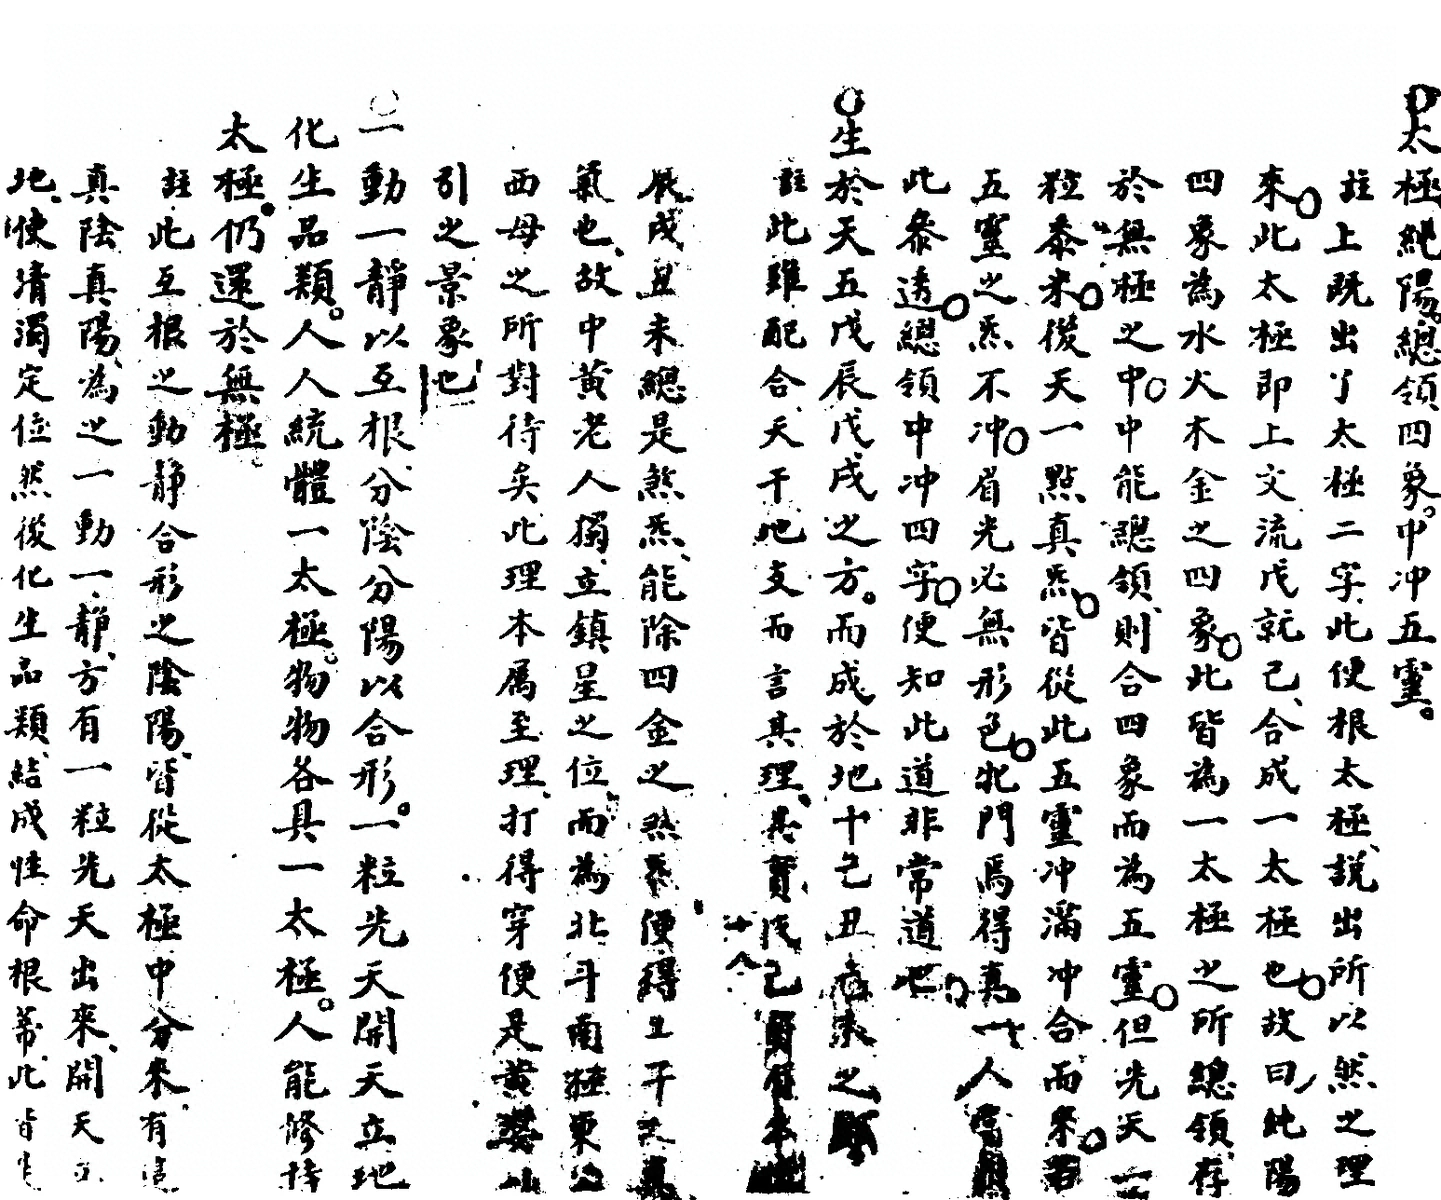 太極純陽。總領四象。中冲五靈。
註上既出了太極二字、此便根太極、説出所以然之理
來此太極即上文流戊就己、合成一太極也故曰純陽
四象為水火木金之四象此皆為一太極之所總領存
於無極之中中能總領、則合四象而為五靈但先天一
粒黍米後天一點真炁皆從此五靈冲滿冲合而來若
五靈之炁不冲眉光必無形色牝門焉得真一人
此黍透總領中冲四字便知此道非常道也
生於天五戊辰戊戌之方。而成於地十己丑未之
註此雖配合天干地支而言其理、其實戊己
辰戌丑未總是煞炁、能除四金之煞炁便得生干
氣也、故中黃老人獨立鎮星之位、而為北斗南極東公
西母之所對待矣此理本属至理、打得穿便是黃婆
引之景象也
一動一靜以互根分陰分陽以合形。一粒先天開天立地
化生品類。人人統體一太極。物物各具一太極。人能修持
太極仍還於無極
註此互根之動靜合形之陰陽、皆從太極中分來、有這
真陰真陽、為之一動一靜、方有一粒先天出來、開天立
地、使清濁定位然後化生品類、結成性命根蒂、此皆